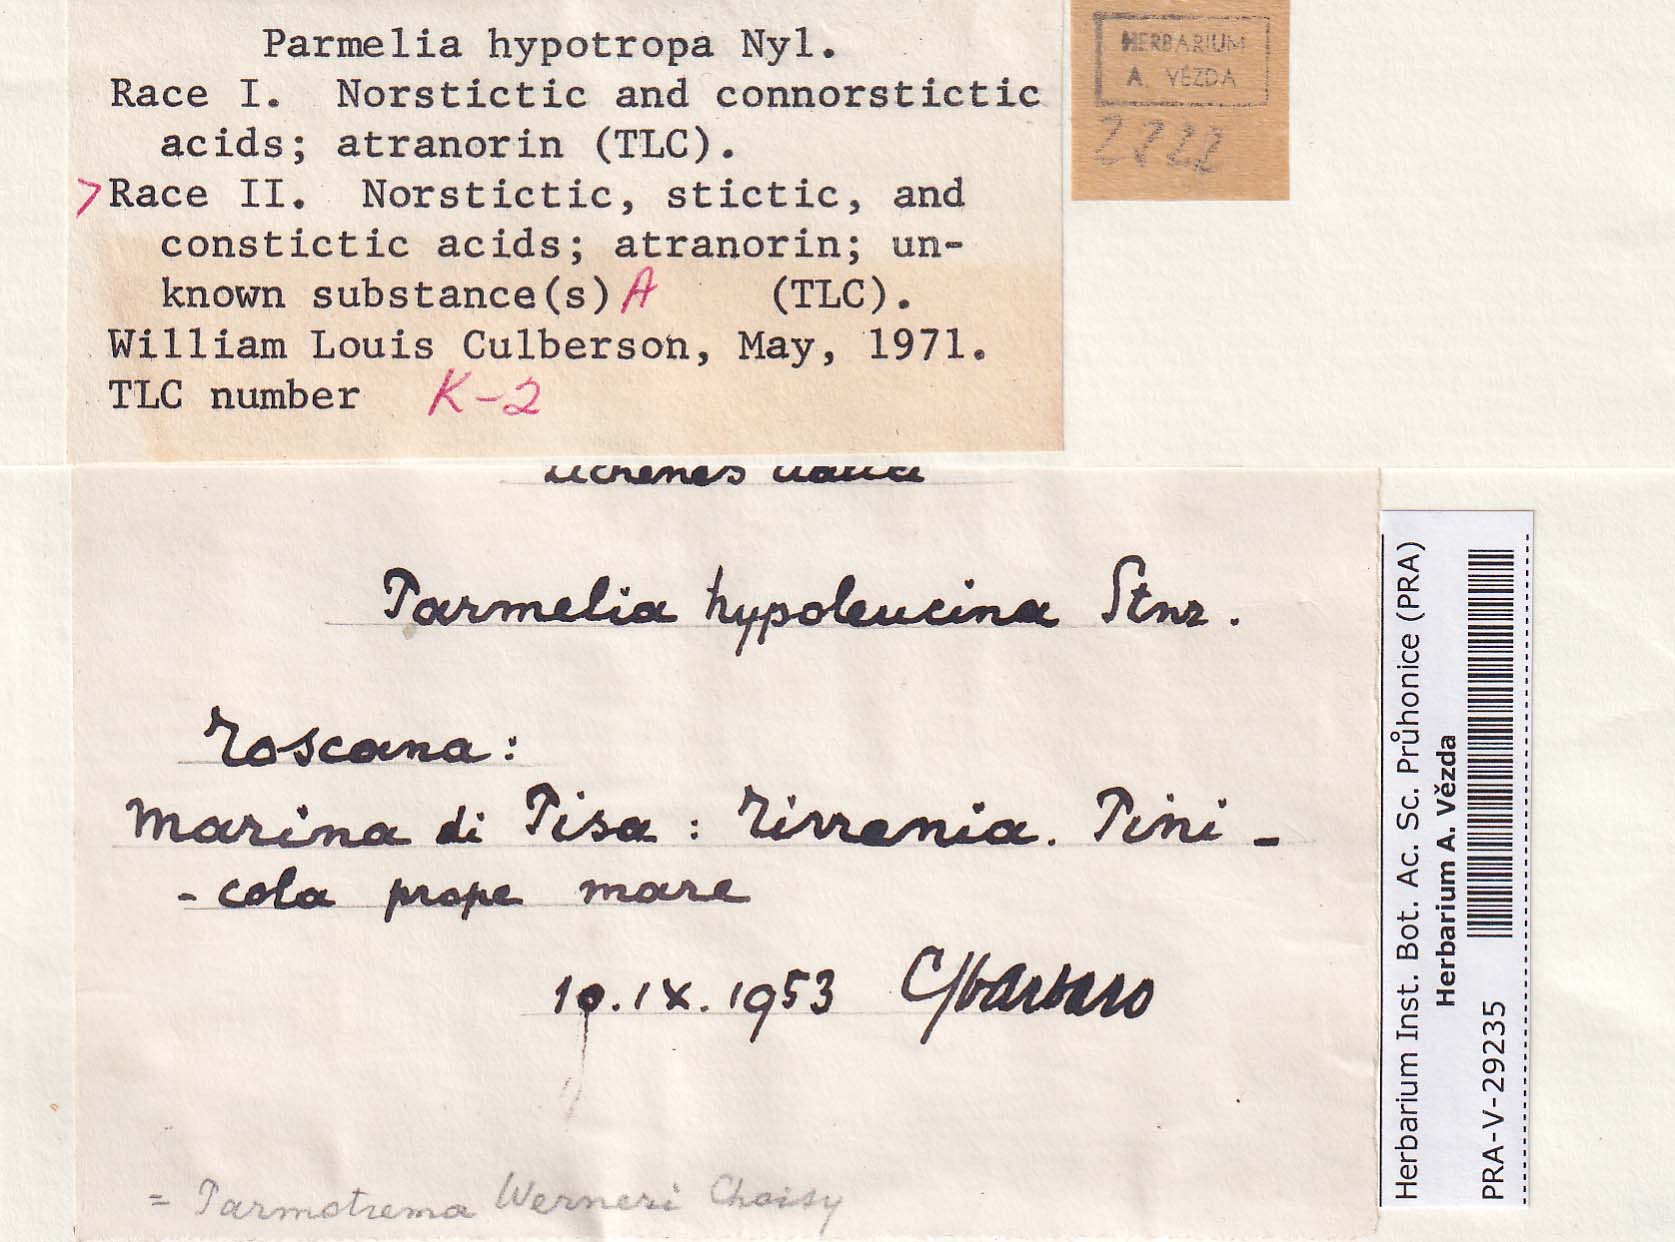 Parmelia hypotropa Nyl.
Race I. Norstictic and connorstictic
acids; atranorin (TLC).
>Race II. Norstictic, stictic, and
constictic acids; atranorin; un-
known substance(s) A (TLC).
William Louis Culberson, May, 1971.
TLC number K-2
HERBARIUM
A VĚZDA
Parmelia hypoleucina Stnr.
Toscana:
Marina di Pisa: Tirrenia. Pini-
-cola prope mare
10.IX.1953 C Sbarbaro
= Parmotrema Werneri Choisy
Herbarium Inst. Bot. Ac. Sc. Průhonice (PRA)
Herbarium A. Vězda
PRA-V-29235